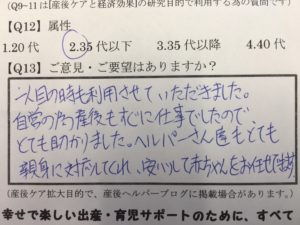 (Q9~11は[産後ケアと経済効果]の研究目的で利用する為の質問です)
【Q12】属性
1.20代 2.35代以下 3.35代以降 4.40代
【Q13】ご意見・ご要望はありますか?
1人目の時も利用させていただきました。
自営の為産後もすぐに仕事でしたので、
とても助かりました。ヘルパーさん達もとても
親身に対応してくれ、安心して赤ちゃんをお任せできます
(産後ケア拡大目的で、産後ヘルパーブログに掲載場合があります。)
幸せで楽しい出産・育児サポートのために、すべて